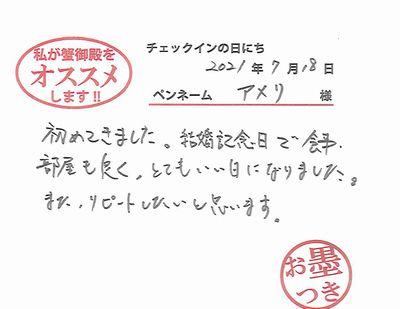 私が蟹御殿を
オススメ
します!!
チェックインの日にち
2021年7月18日
ペンネーム アメリ 様
初めてきました。結婚記念日で食事、
部屋も良く、とてもいい日になりました。
また、リピートしたいと思います。
お墨
つき